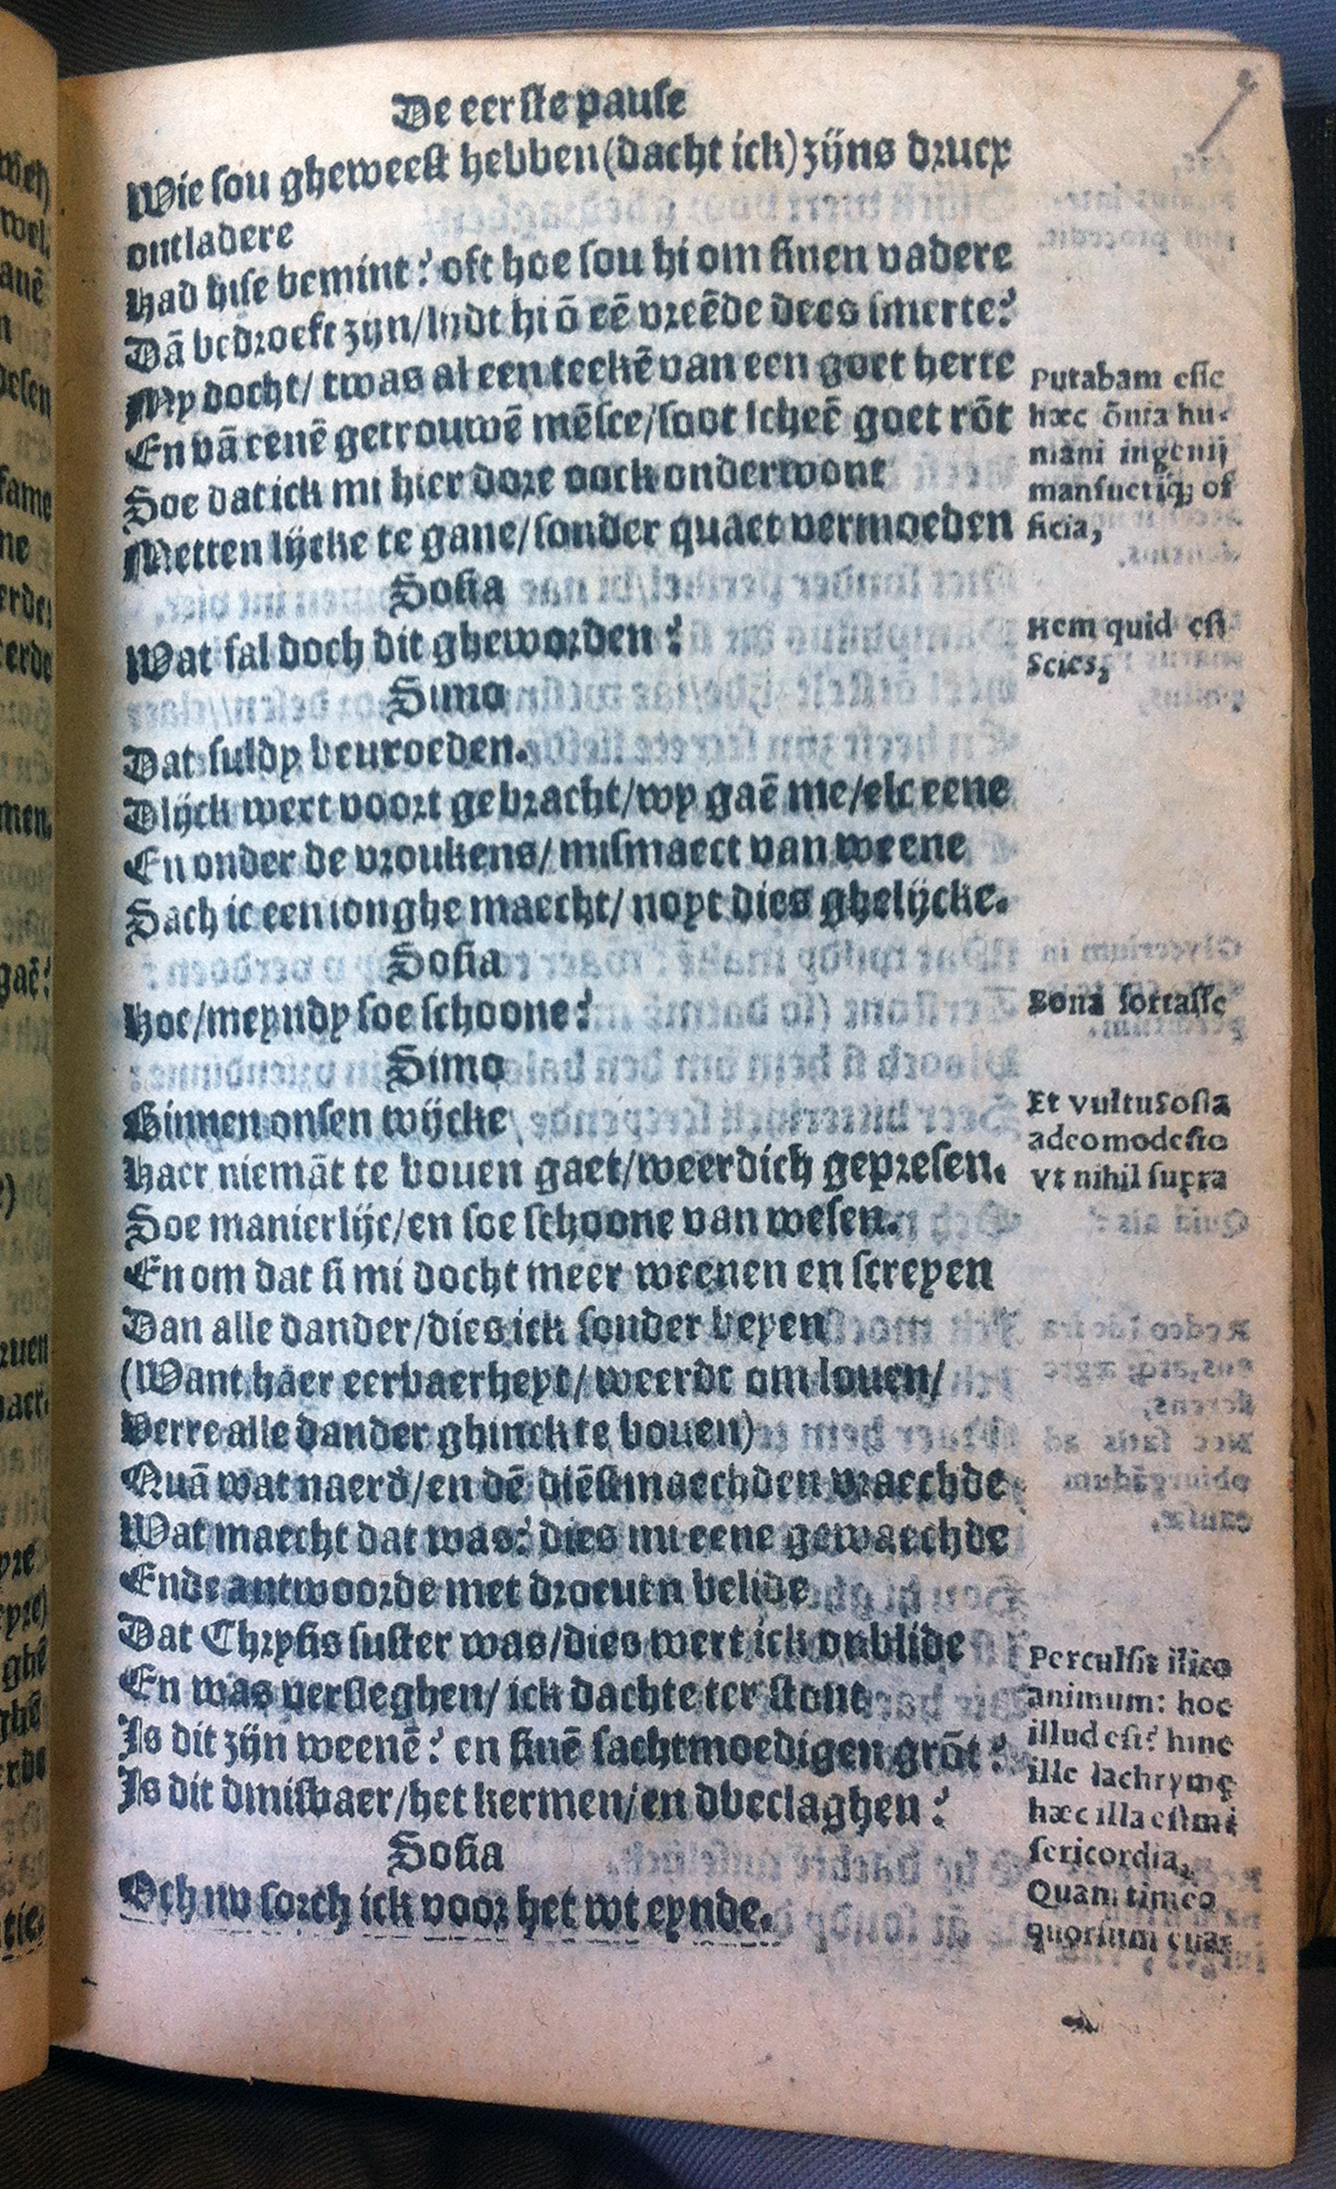 De eerste pause
Wie sou gheweest hebben (dacht ick) zijns drucx
ontladere
Had hise bemint? oft hoe sou hi om sinen vadere
Dā bedroeft zijn/lydt hi ō eē vreēde dees smerte?
My docht/ twas al een teekē van een goet herte
En vā eenē getrouwē mēsce/soot scheē goet rōt
Soe dat ick mi hier dore oock onderwont
Metten lijcke te gane/sonder quaet vermoeden
Sosia
Wat sal doch dit gheworden?
Simo
Dat suldy beuroeden.
Dlijck wert voort gebracht/wy gaē me/elc eene
En onder de vroukens/ mismaect van weene
Sach ic een ionghe maecht/ noyt dies ghelijcke.
Sosia
Hoe/meyndy soe schoone?
Simo
Binnen onsen wijcke
Haer niemāt te bouen gaet/weerdich gepresen.
Soe manierlijc/en soe schoone van wesen.
En om dat si mi docht meer weenen en screyen
Dan alle dander/dies ick sonder beyen
(Want haer eerbaerheyt/ weerdt om louen/
Verre alle dander ghinck te bouen)
Quā wat naerd/en dē diēstmaechden vraechde
Wat maecht dat was? dies mi eene gewaechde
Ende antwoorde met droeuen belide
Dat Chrysis suster was/dies wert ick onblide
En was versleghen/ ick dachte ter stont
Is dit zijn weenē? en sinē sachtmoedigen grōt?
Is dit dmisbaer/het kermen/en dbeclaghen?
Sosia
Och nu sorch ick voor het wt eynde.
Putabam esse
hæc ōnia hu-
mani ingenij
mansuetiq; of
ficia,
Hem quid est
Scies,
Bona fortasse
Et vultu Sosia
adeo modesto
Vt nihil supra
Perculsit ilico
animum: hoc
illud est? hinc
ille lachrymę
hæc illa est mi
sericordia,
Quam timeo
quorsum euas